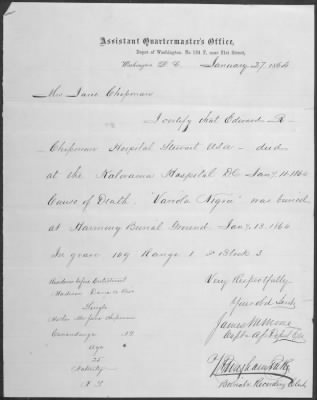 Assistant Quartermaster's Office,
Depot of Washington, No 134 F, near 21st Street,
Washington D. C. January 27 1864
Mrs Jane Chapman
I certify that Edward R
Chapman Hospital Steward USA died
at the Kalorama Hospital DC Jany 11 1864
Cause of Death "Variola Nigra" was buried
at Harmony Burial Ground Jany 13 1864
In grave 109 Range 1 Block 3
Very Respectfully
Your Obt Servt
James M Moore
Capt & A.Q.M.
Residence before Enlistment
Madison Dane Co Wis
Single
Mother Mrs Jane Chapman
Canandaigua NY
Age
25
Nativity
N Y